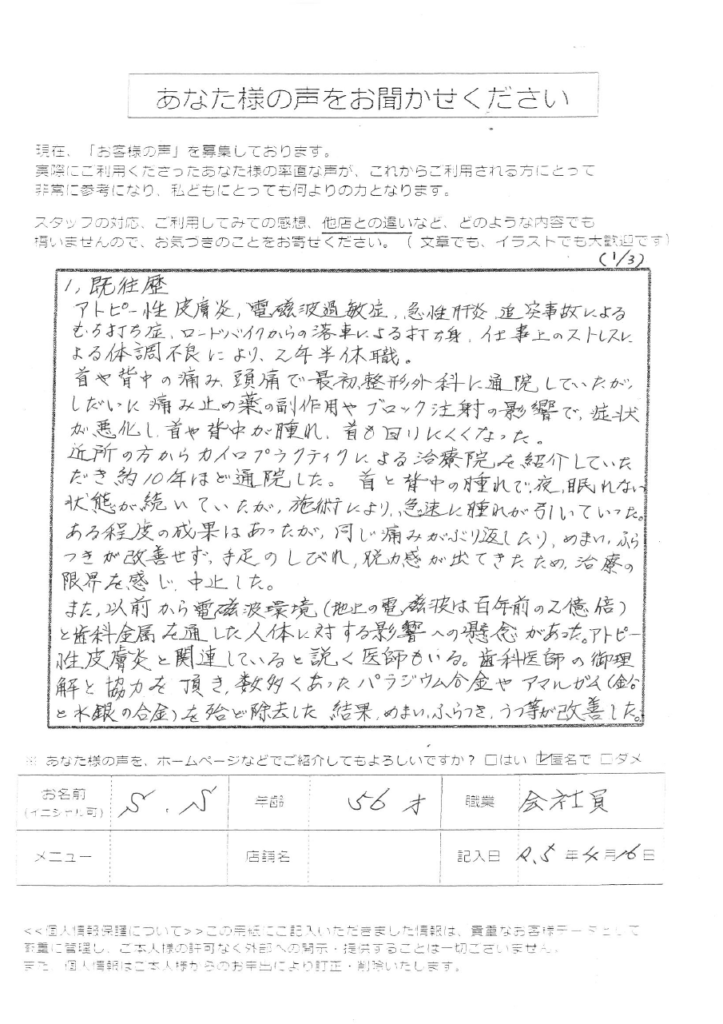 あなた様の声をお聞かせください
現在、「お客様の声」を募集しております。
実際にご利用くださったあなた様の率直な声が、これからご利用される方にとって
非常に参考になり、私どもにとっても何よりの力となります。
スタッフの対応、ご利用してみての感想、他店との違いなど、どのような内容でも
構いませんので、お気づきのことをお寄せください。（ 文章でも、イラストでも大歓迎です）
(1/3)
1, 既往歴
アトピー性皮膚炎, 電磁波過敏症, 急性肝炎, 追突事故による
むち打ち症, ロードバイクからの落車による打ち身, 仕事上のストレスに
よる体調不良により、2年半休職。
首や背中の痛み, 頭痛で最初, 整形外科に通院していたが,
しだいに痛み止の薬の副作用やブロック注射の影響で, 症状
が悪化し, 首や背中が腫れ, 首も回りにくくなった。
近所の方からカイロプラクティクによる治療院を紹介していた
だき約10年ほど通院した。 首と背中の腫れで, 夜, 眠れない
状態が続いていたが, 施術により, 急速に腫れが引いていった。
ある程度の成果はあったが, 同じ痛みがぶり返したり, めまい, ふら
つきが改善せず, 手足のしびれ, 脱力感が出てきたため, 治療の
限界を感じ, 中止した。
また, 以前から電磁波環境 (地上の電磁波は百年前の2億倍)
と歯科金属を通した人体に対する影響への懸念があった。アトピー
性皮膚炎と関連していると説く医師もいる。歯科医師の御理
解と協力を頂き, 数多くあったパラジウム合金やアマルガム (鉛
と水銀の合金) を殆ど除去した結果, めまい, ふらつき, うつ等が改善した。
※ あなた様の声を、ホームページなどでご紹介してもよろしいですか？ □はい ☑匿名で □ダメ
お名前 (イニシャル可) S.S 年齢 56才 職業 会社員
メニュー 店舗名 記入日 R.5年4月16日
<<個人情報保護について>>この用紙にご記入いただきました情報は、貴重なお客様データとして
厳重に管理し、ご本人様の許可なく外部への開示・提供することは一切ございません。
また、個人情報はご本人様からのお申出により訂正・削除いたします。